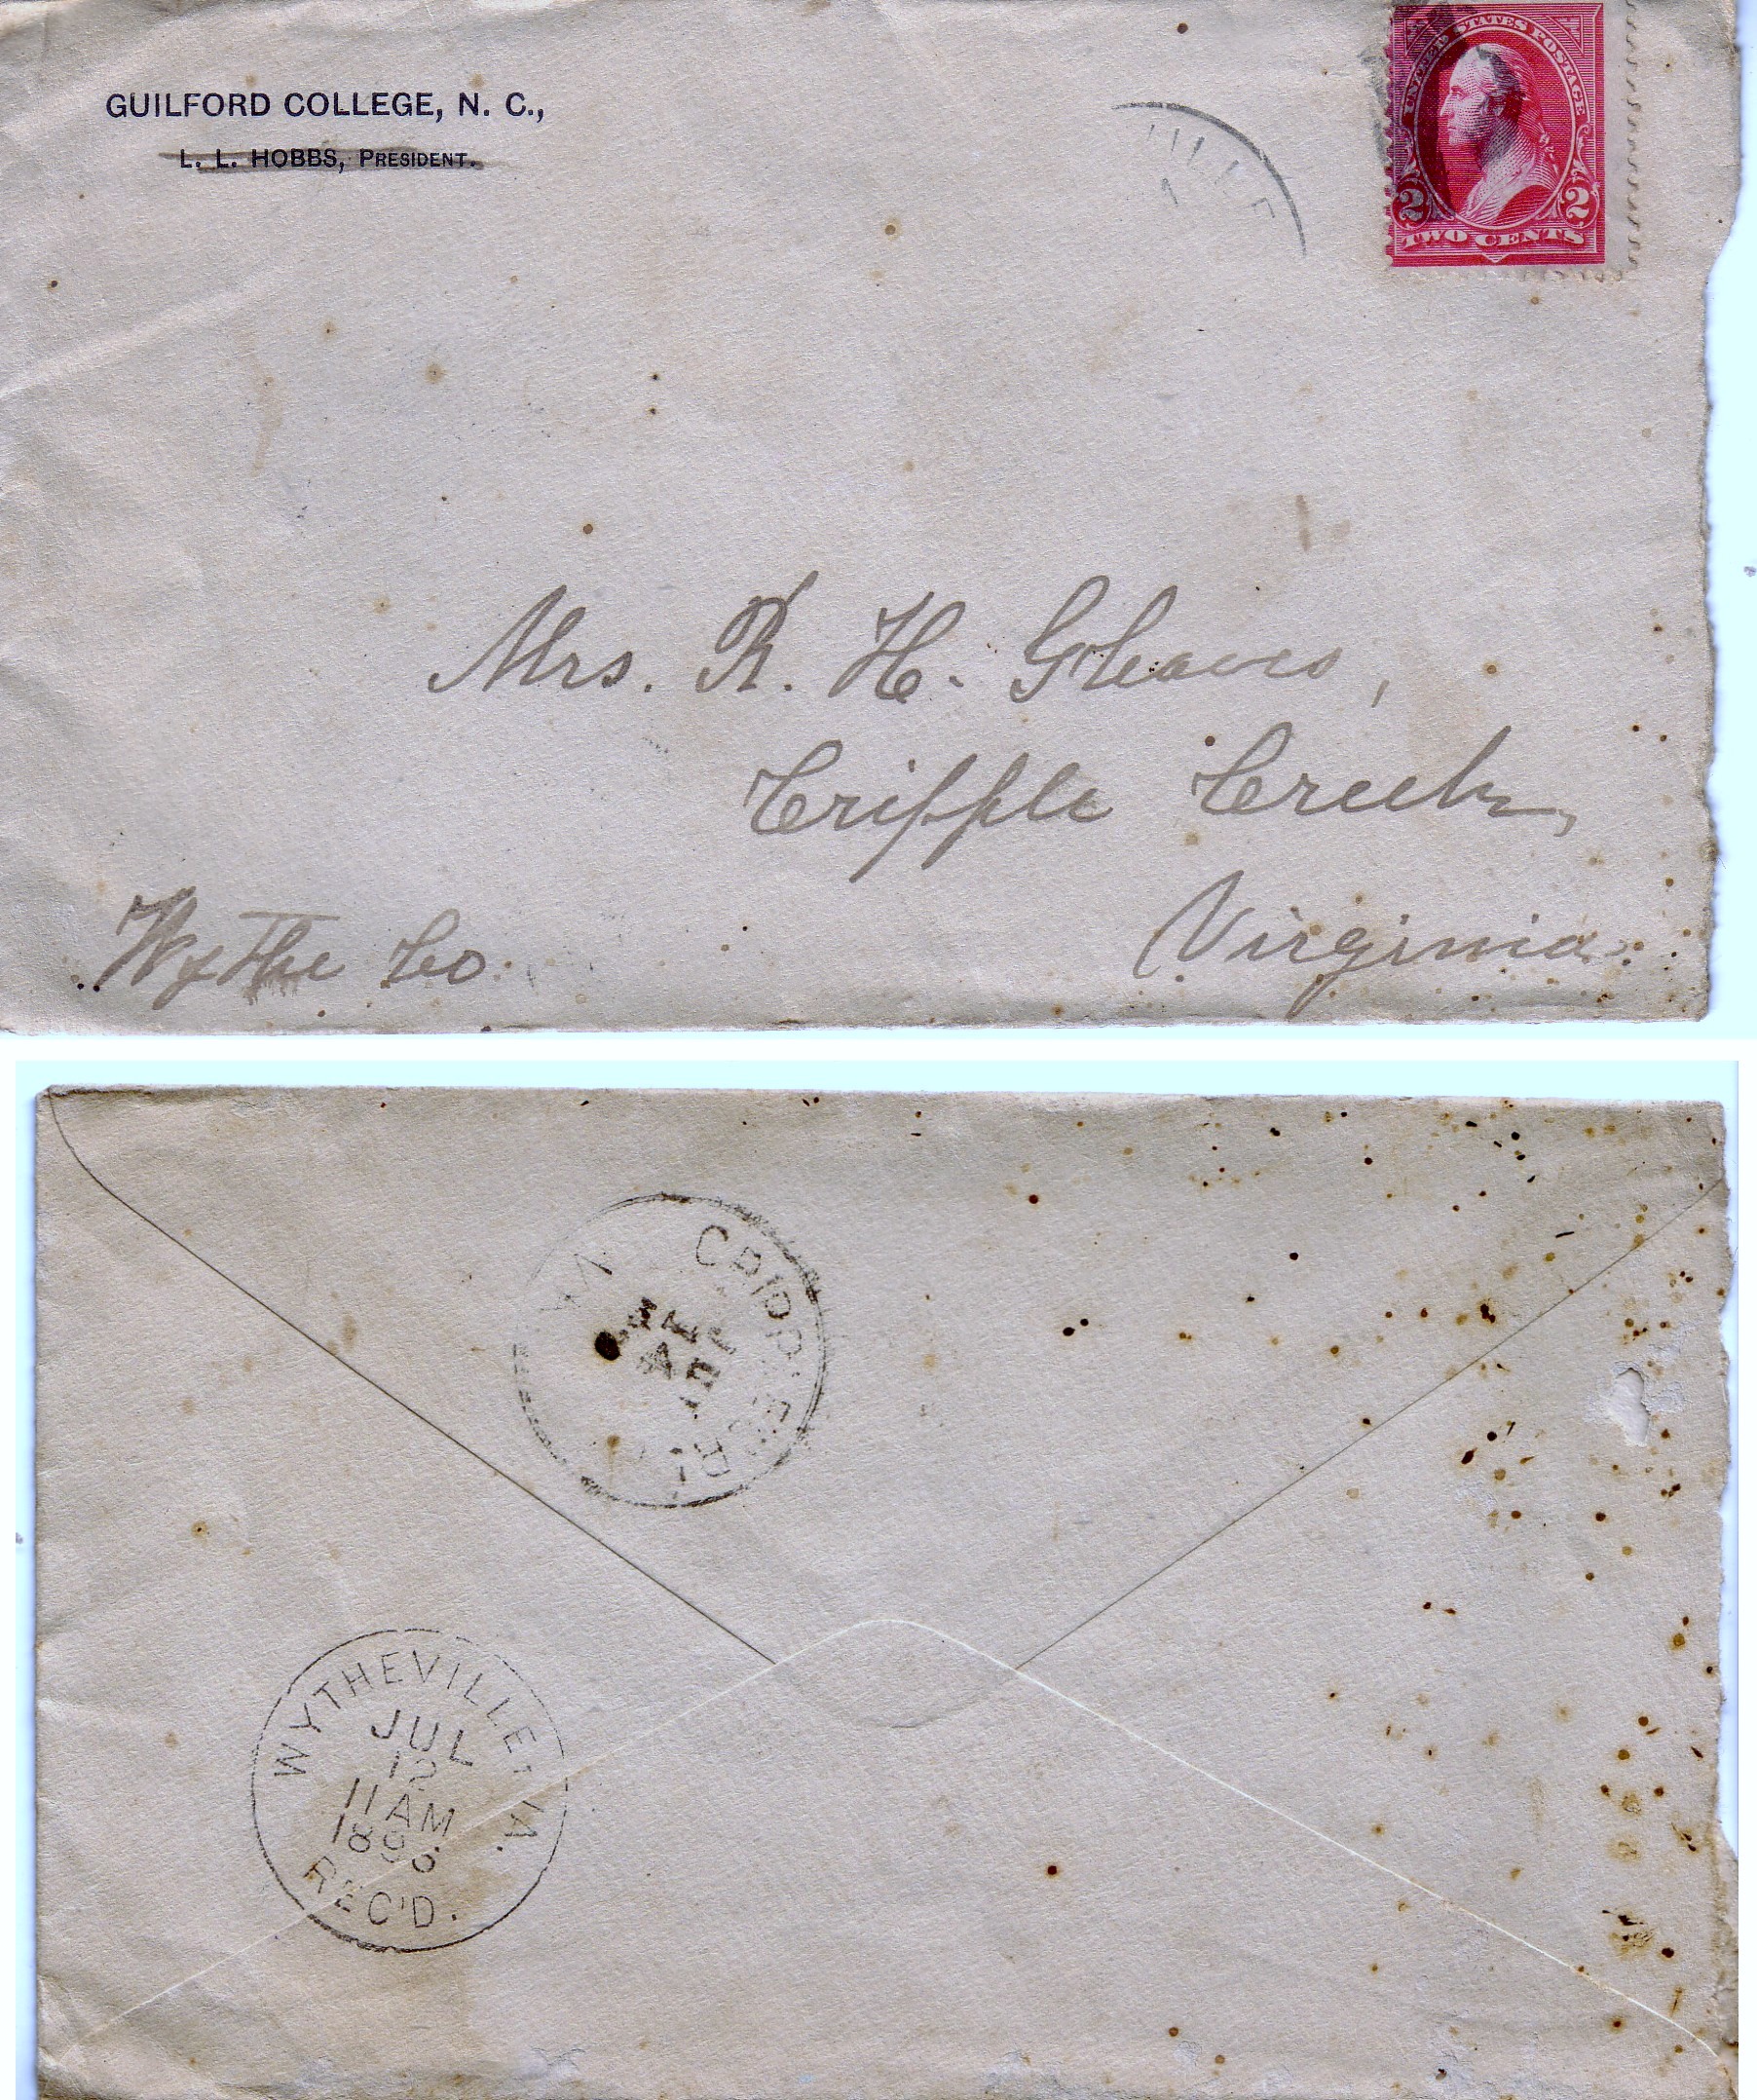 GUILFORD COLLEGE, N. C.,
L. L. HOBBS, PRESIDENT.
UNITED STATES POSTAGE
2 2
TWO CENTS
ILLE
Mrs. R. H. Gleaves,
Cripple Creek,
Virginia.
Wythe Co.
CRIPPLE CR
VA
WYTHEVILLE, VA.
JUL
12
11 AM
1896
REC'D.